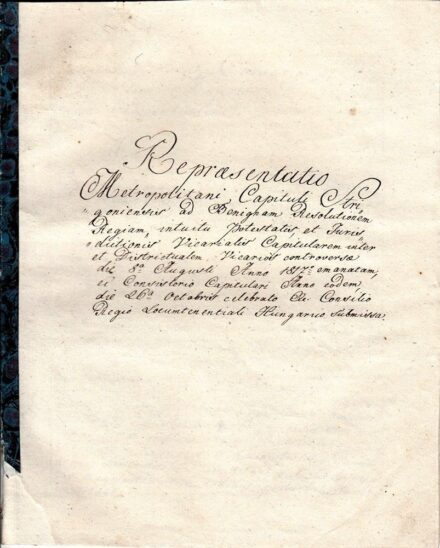 Repræsentatio
Metropolitani Capituli Stri
„goniensis ad Benignam Resolutionem
Regiam, intuitu Potestatis et Juris
„dictionis Vicarialis Capitularem inter
et Districtualem Vicarios controversa
die 8ª Augusti Anno 1817º emanatam,
ex Consistorio Capitulari Anno eodem,
die 26ª Octobris celebrato Consilio
Regio Locumtenentiali Hungarico submissa.